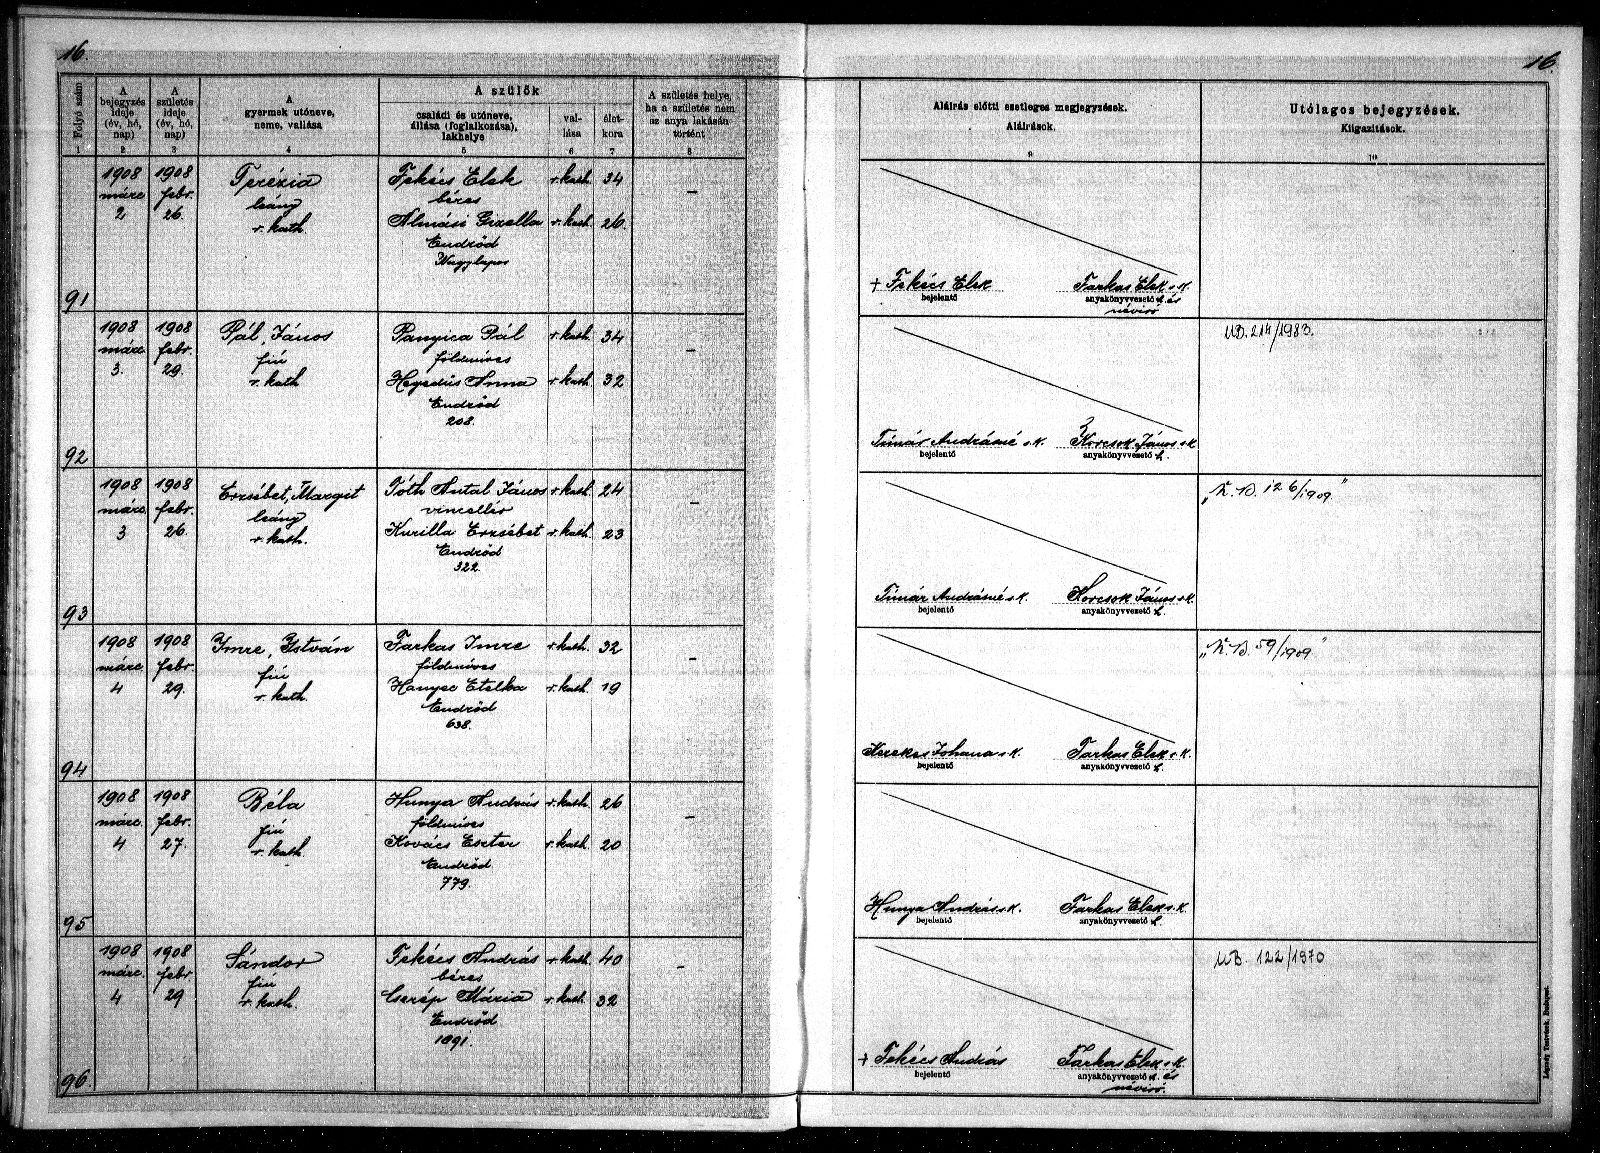 16.
16.
Folyó szám
A bejegyzés ideje (év, hó, nap)
A születés ideje (év, hó, nap)
A gyermek utóneve, neme, vallása
A szülők
családi és utóneve, állása (foglalkozása), lakhelye
vallása
életkora
A születés helye, ha a születés nem az anya lakásán történt
Aláírás előtti esetleges megjegyzések.
Aláírások.
Utólagos bejegyzések.
Kiigazítások.
1 2 3 4 5 6 7 8 9 10
91
1908 márc. 2
1908 febr. 26.
Terézia
leány
r. kath.
Fekécs Elek r. kath. 34
béres
Almási Gizella r. kath. 26.
Endrőd
Nagylapos
–
+ Fekécs Elek
bejelentő
Farkas Elek s.k.
anyakönyvvezető h. és
névíró
92
1908 márc. 3.
1908 febr. 29.
Pál, János
fiú
r. kath
Panyica Pál r. kath. 34
földmíves
Hegedüs Anna r. kath. 32
Endrőd
208.
–
Tímár Andrásné s.k.
bejelentő
Korcsok János s.k.
anyakönyvvezető h.
UB. 214/1983.
93
1908 márc. 3
1908 febr. 26.
Erzsébet, Margit
leány
r. kath.
Tóth Antal János r. kath. 24
vincellér
Kurilla Erzsébet r. kath. 23
Endrőd
322.
–
Tímár Andrásné s.k.
bejelentő
Korcsok János s.k.
anyakönyvvezető h.
„K.B. 126/1909."
94
1908 márc. 4
1908 febr. 29.
Imre, István
fiú
r. kath.
Farkas Imre r. kath. 32
földmíves
Hanyec Etelka r. kath. 19
Endrőd
638.
–
Kerekes Johana s.k.
bejelentő
Farkas Elek s.k.
anyakönyvvezető h.
„K.B. 59/1909"
95
1908 márc. 4
1908 febr. 27.
Béla
fiú
r. kath.
Hunya András r. kath. 26
földmíves
Kovács Eszter r. kath. 20
Endrőd
779.
–
Hunya András s.k.
bejelentő
Farkas Elek s.k.
anyakönyvvezető h.
96
1908 márc. 4
1908 febr 29
Sándor
fiú
r. kath.
Fekécs András r. kath. 40
béres
Cserép Mária r. kath. 32
Endrőd
1091.
–
+ Fekécs András
bejelentő
Farkas Elek s.k.
anyakönyvvezető h. és
névíró.
UB. 122/1970